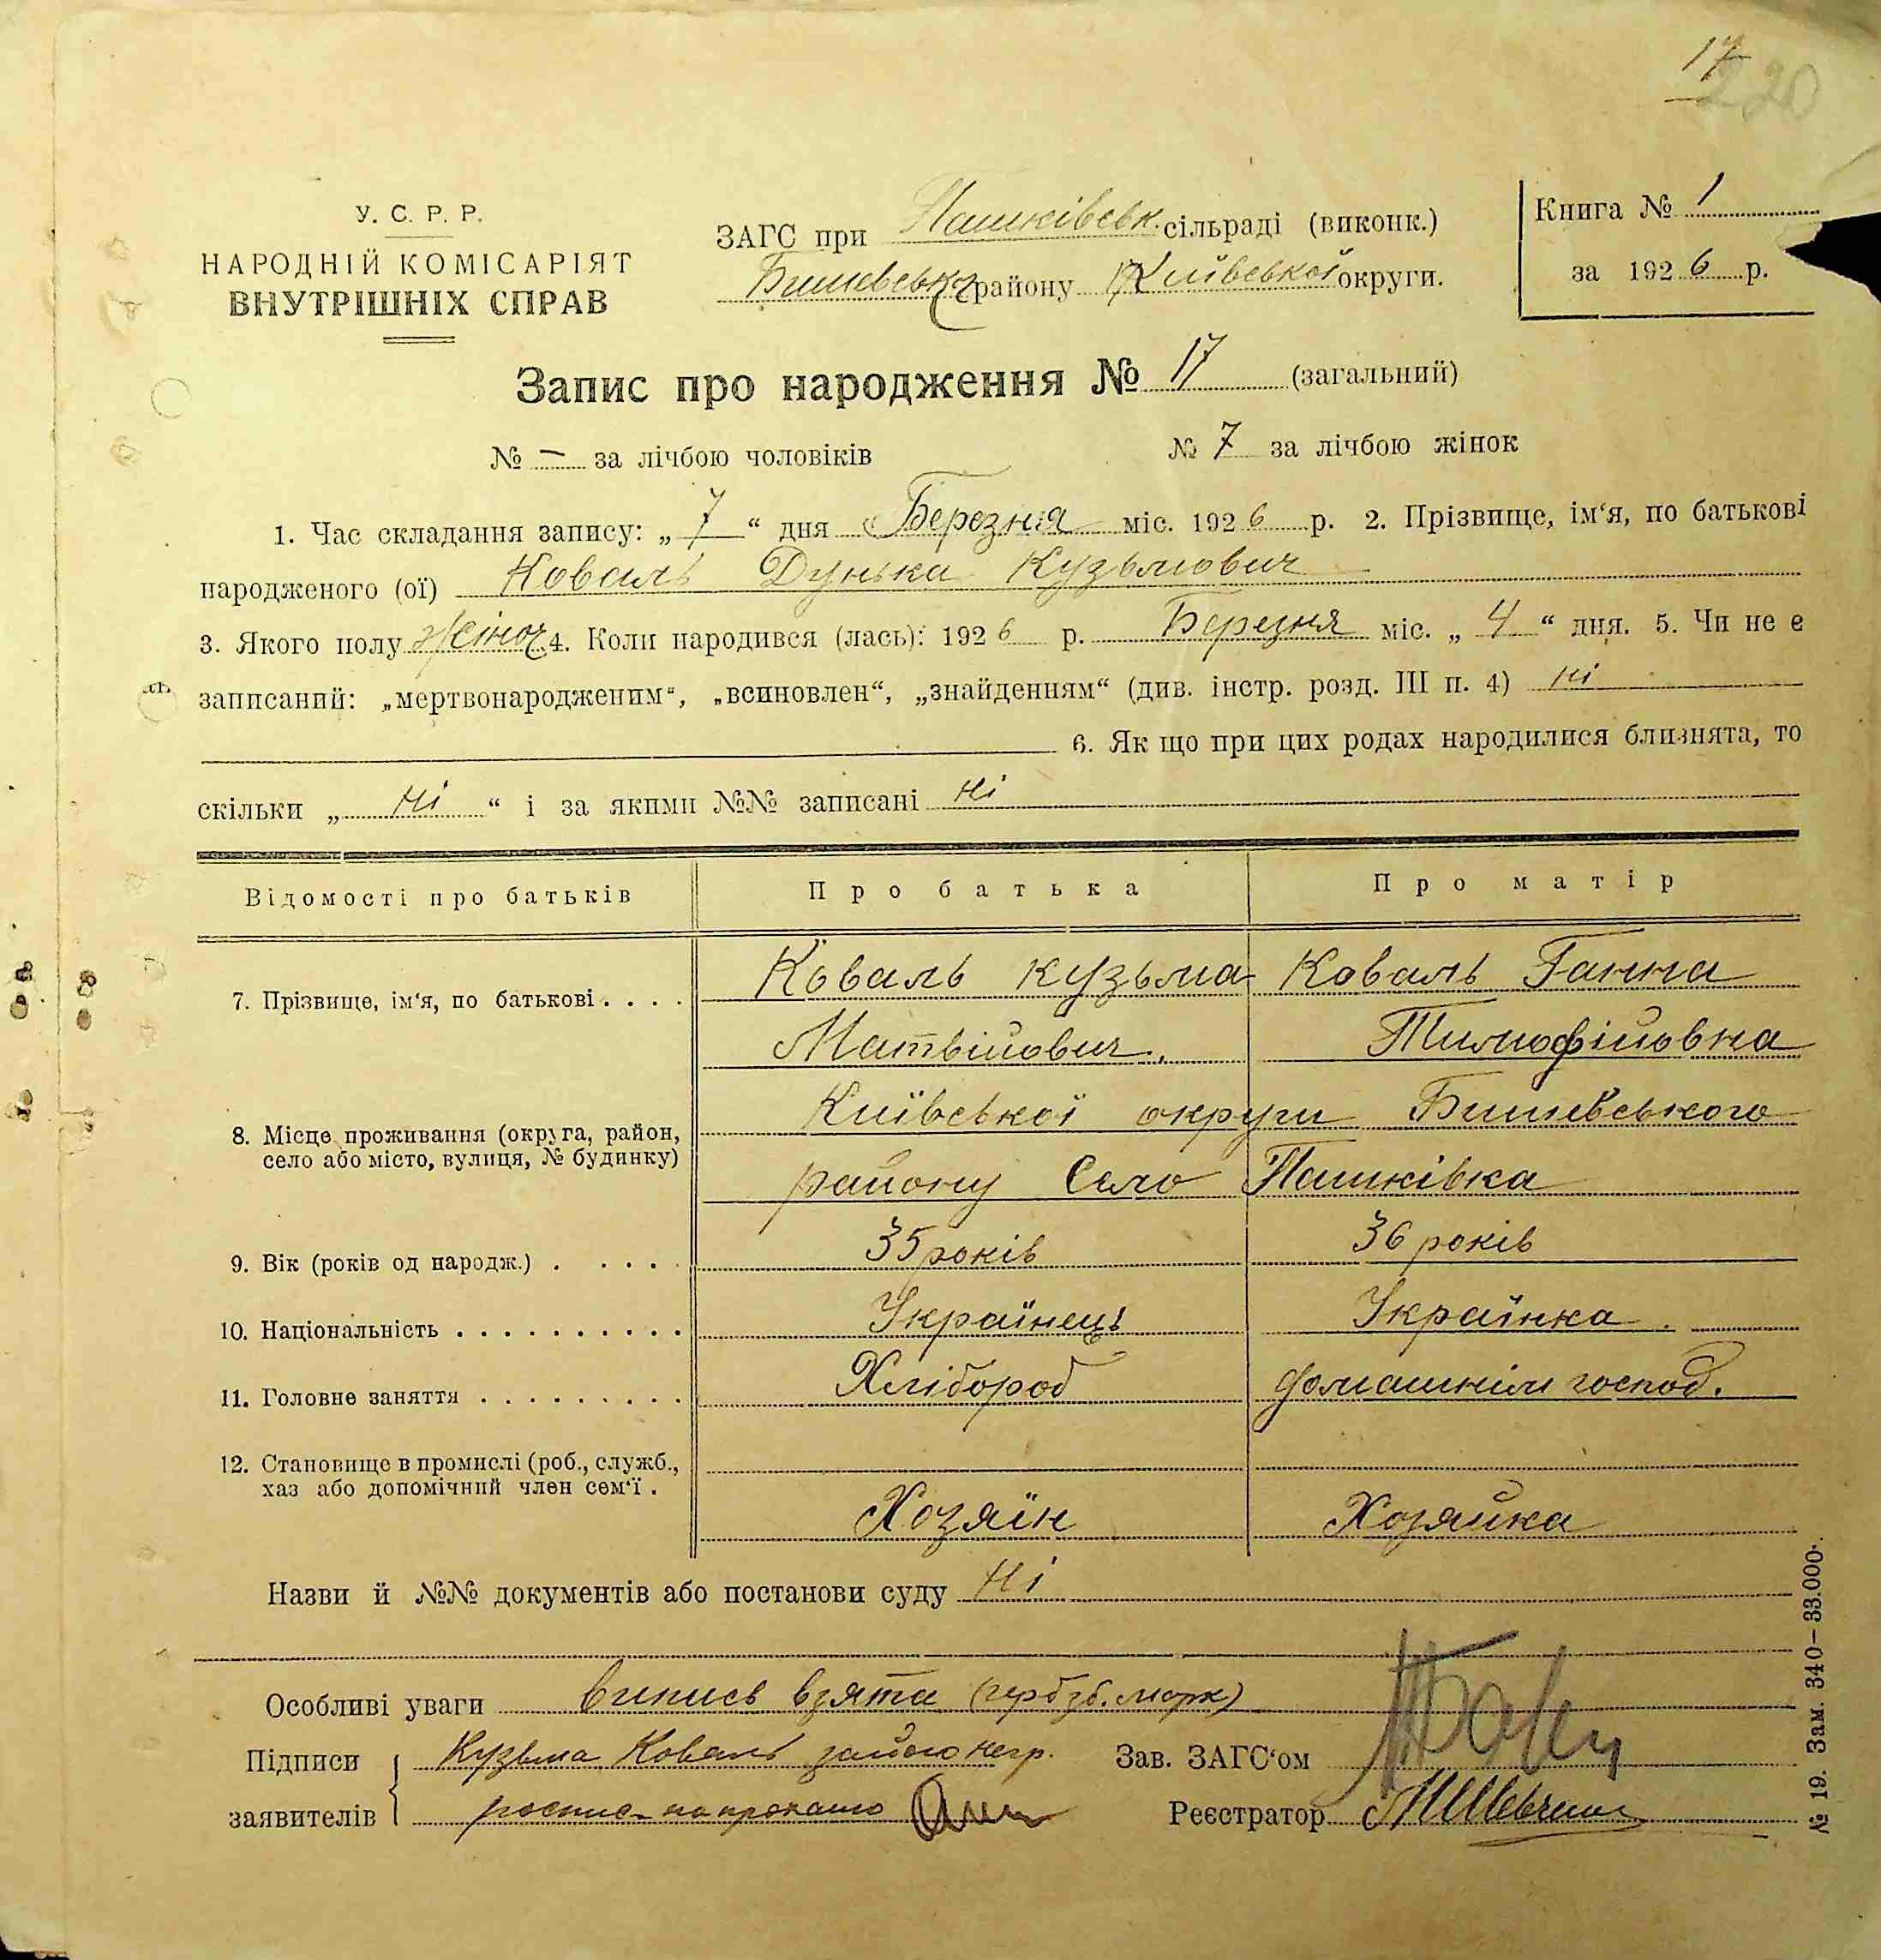 17
220
У. С. Р. Р.
НАРОДНІЙ КОМІСАРІЯТ
ВНУТРІШНІХ СПРАВ
ЗАГС при Пашківськ. сільраді (виконк.)
Бишевськ району Київської округи.
Книга № 1
за 1926 р.
Запис про народження № 17 (загальний)
№ — за лічбою чоловіків № 7 за лічбою жінок
1. Час складання запису: „7“ дня Березня міс. 1926 р. 2. Прізвище, ім‘я, по батькові
народженого (ої) Коваль Дунька Кузьмович
3. Якого полу жіноч 4. Коли народився (лась): 1926 р. Березня міс. „4“ дня. 5. Чи не є
записаний: „мертвонародженим“, „всиновлен“, „знайденням“ (див. інстр. розд. III п. 4) ні
6. Як що при цих родах народилися близнята, то
скільки „ні“ і за якими №№ записані ні
Відомості про батьків Про батька Про матір
7. Прізвище, ім‘я, по батькові . . . . Коваль кузьма Коваль Ганна
Матвійович. Тимофійовна
8. Місце проживання (округа, район, село або місто, вулиця, № будинку) Київської округи Бишевського
району Село Пашківка
9. Вік (років од народж.) . . . . . 35 років 36 років
10. Національність . . . . . . . . . . Українець Українка.
11. Головне заняття . . . . . . . . . Хлібороб домашнім господ.
12. Становище в промислі (роб., служб.,
хаз або допомічний член сем‘ї .
Хозяїн Хозяйка
Назви й №№ документів або постанови суду ні
Особливі уваги випись взята (герб зб. марк)
Підписи Кузьма Коваль негр. Зав. ЗАГС‘ом
заявителів Реєстратор
№ 19. Зам. 340—33.000.